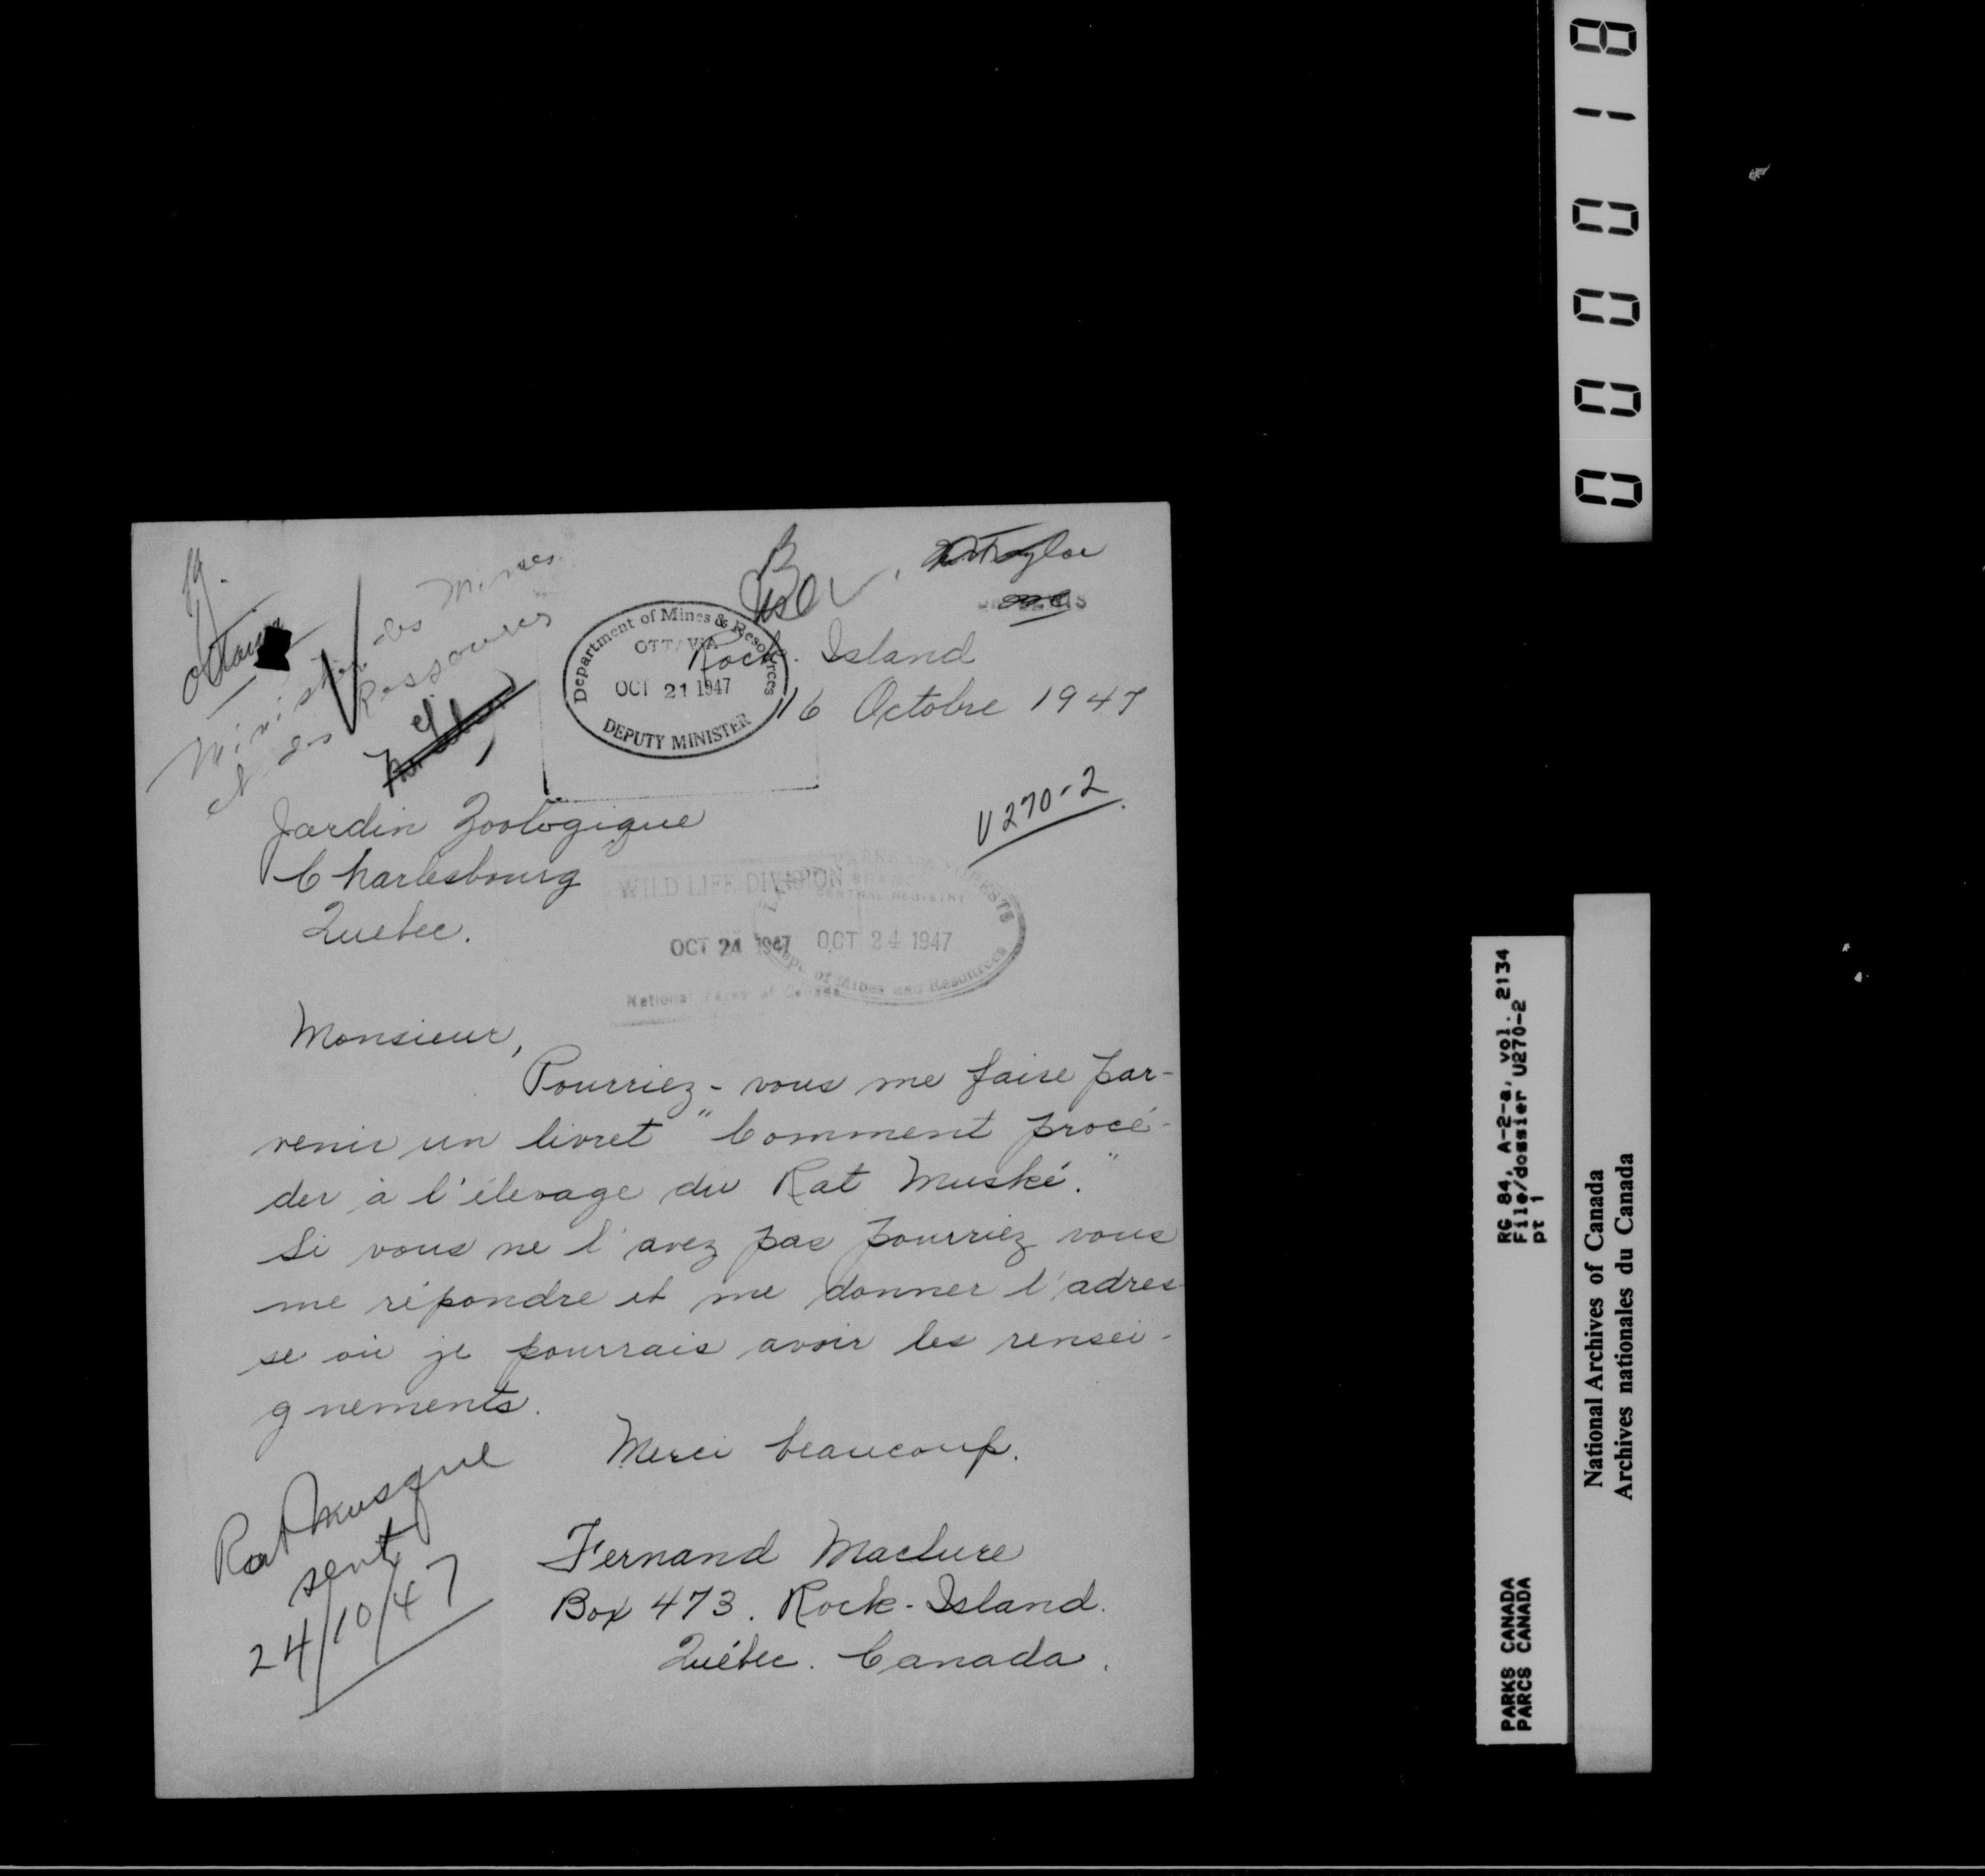 Ottawa
Ministère des Mines
et des Ressources
Department of Mines & Resources
OTTAWA
OCT 21 1947
DEPUTY MINISTER
Rock-Island
16 Octobre 1947
V270-2
Jardin Zoologique
Charlesbourg
Quebec.
WILD LIFE DIVISION
OCT 24 1947
National Parks of Canada
CENTRAL REGISTRY
OCT 24 1947
Dept of Mines and Resources
Monsieur,
Pourriez-vous me faire par-
venir un livret "Comment procé-
der à l'élevage du Rat Muské."
Si vous ne l'avez pas pourriez vous
me répondre et me donner l'adres-
se où je pourrais avoir les rensei-
gnements.
Merci beaucoup.
Rat Musque
sent
24/10/47
Fernand Maclure
Box 473. Rock-Island.
Québec. Canada.
000018
RG 84, A-2-a, vol. 2134
File/dossier U270-2
pt 1
PARKS CANADA
PARCS CANADA
National Archives of Canada
Archives nationales du Canada